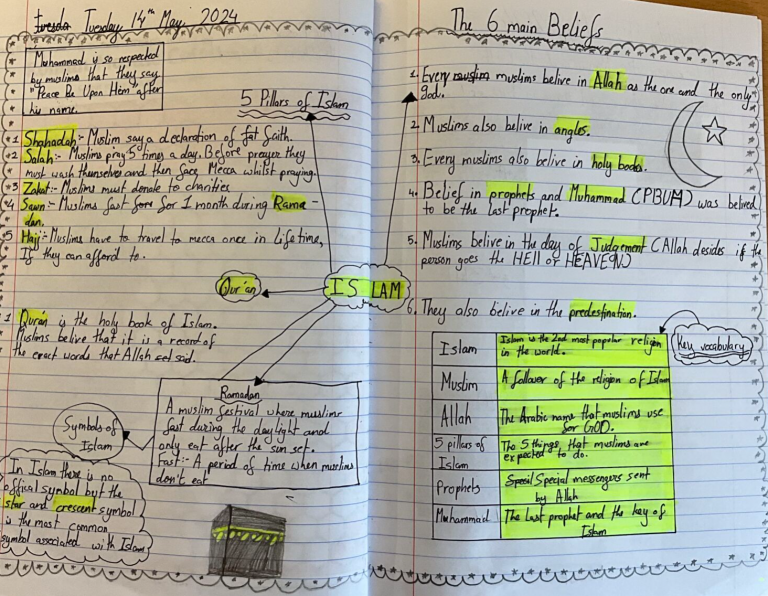 Tuesday 14th May, 2024
Muhammad is so respected
by muslims that they say
"Peace Be Upon Him" after
his name.
5 Pillars of Islam
1 Shahadah:- Muslim say a declaration of faith.
2 Salah:- Muslims pray 5 times a day. Before prayer they
must wash themselves and then face Mecca whilst praying.
3 Zakat: Muslims must donate to charities
4 Sawn:- Muslims fast for 1 month during Rama-
dan.
5 Hajj:- Muslims have to travel to mecca once in lifetime,
If they can afford to.
Qur'an
ISLAM
1 Quran is the holy book of Islam.
Muslims believe that it is a record of
the exact words that Allah said.
Ramadan
A muslim festival where muslims
fast during the daylight and
only eat after the sun set.
Fast:- A period of time when muslims
don't eat
Symbols of
Islam
In Islam there is no
offical symbol but the
star and crescent symbol
is the most common
symbol associated with Islam
The 6 main Beliefs
1. Every muslims belive in Allah as the one and the only
god.
2. Muslims also belive in angles.
3. Every muslims also belive in holy books.
4. Belief in prophets and Muhammad (PBUM) was belived
to be the last prophet.
5. Muslims belive in the day of Judgement (Allah desides if the
person goes the HELL or HEAVEN)
6. They also belive in the predestination.
Key vocabulary
Islam
Islam is the 2nd most popular religion
in the world.
Muslim
A follower of the religion of Islam
Allah
The Arabic name that muslims use
for GOD.
5 pillars of
Islam
The 5 things, that muslims are
expected to do.
Prophets
Special messengers sent
by Allah
Muhammad
The last prophet and the key of
Islam